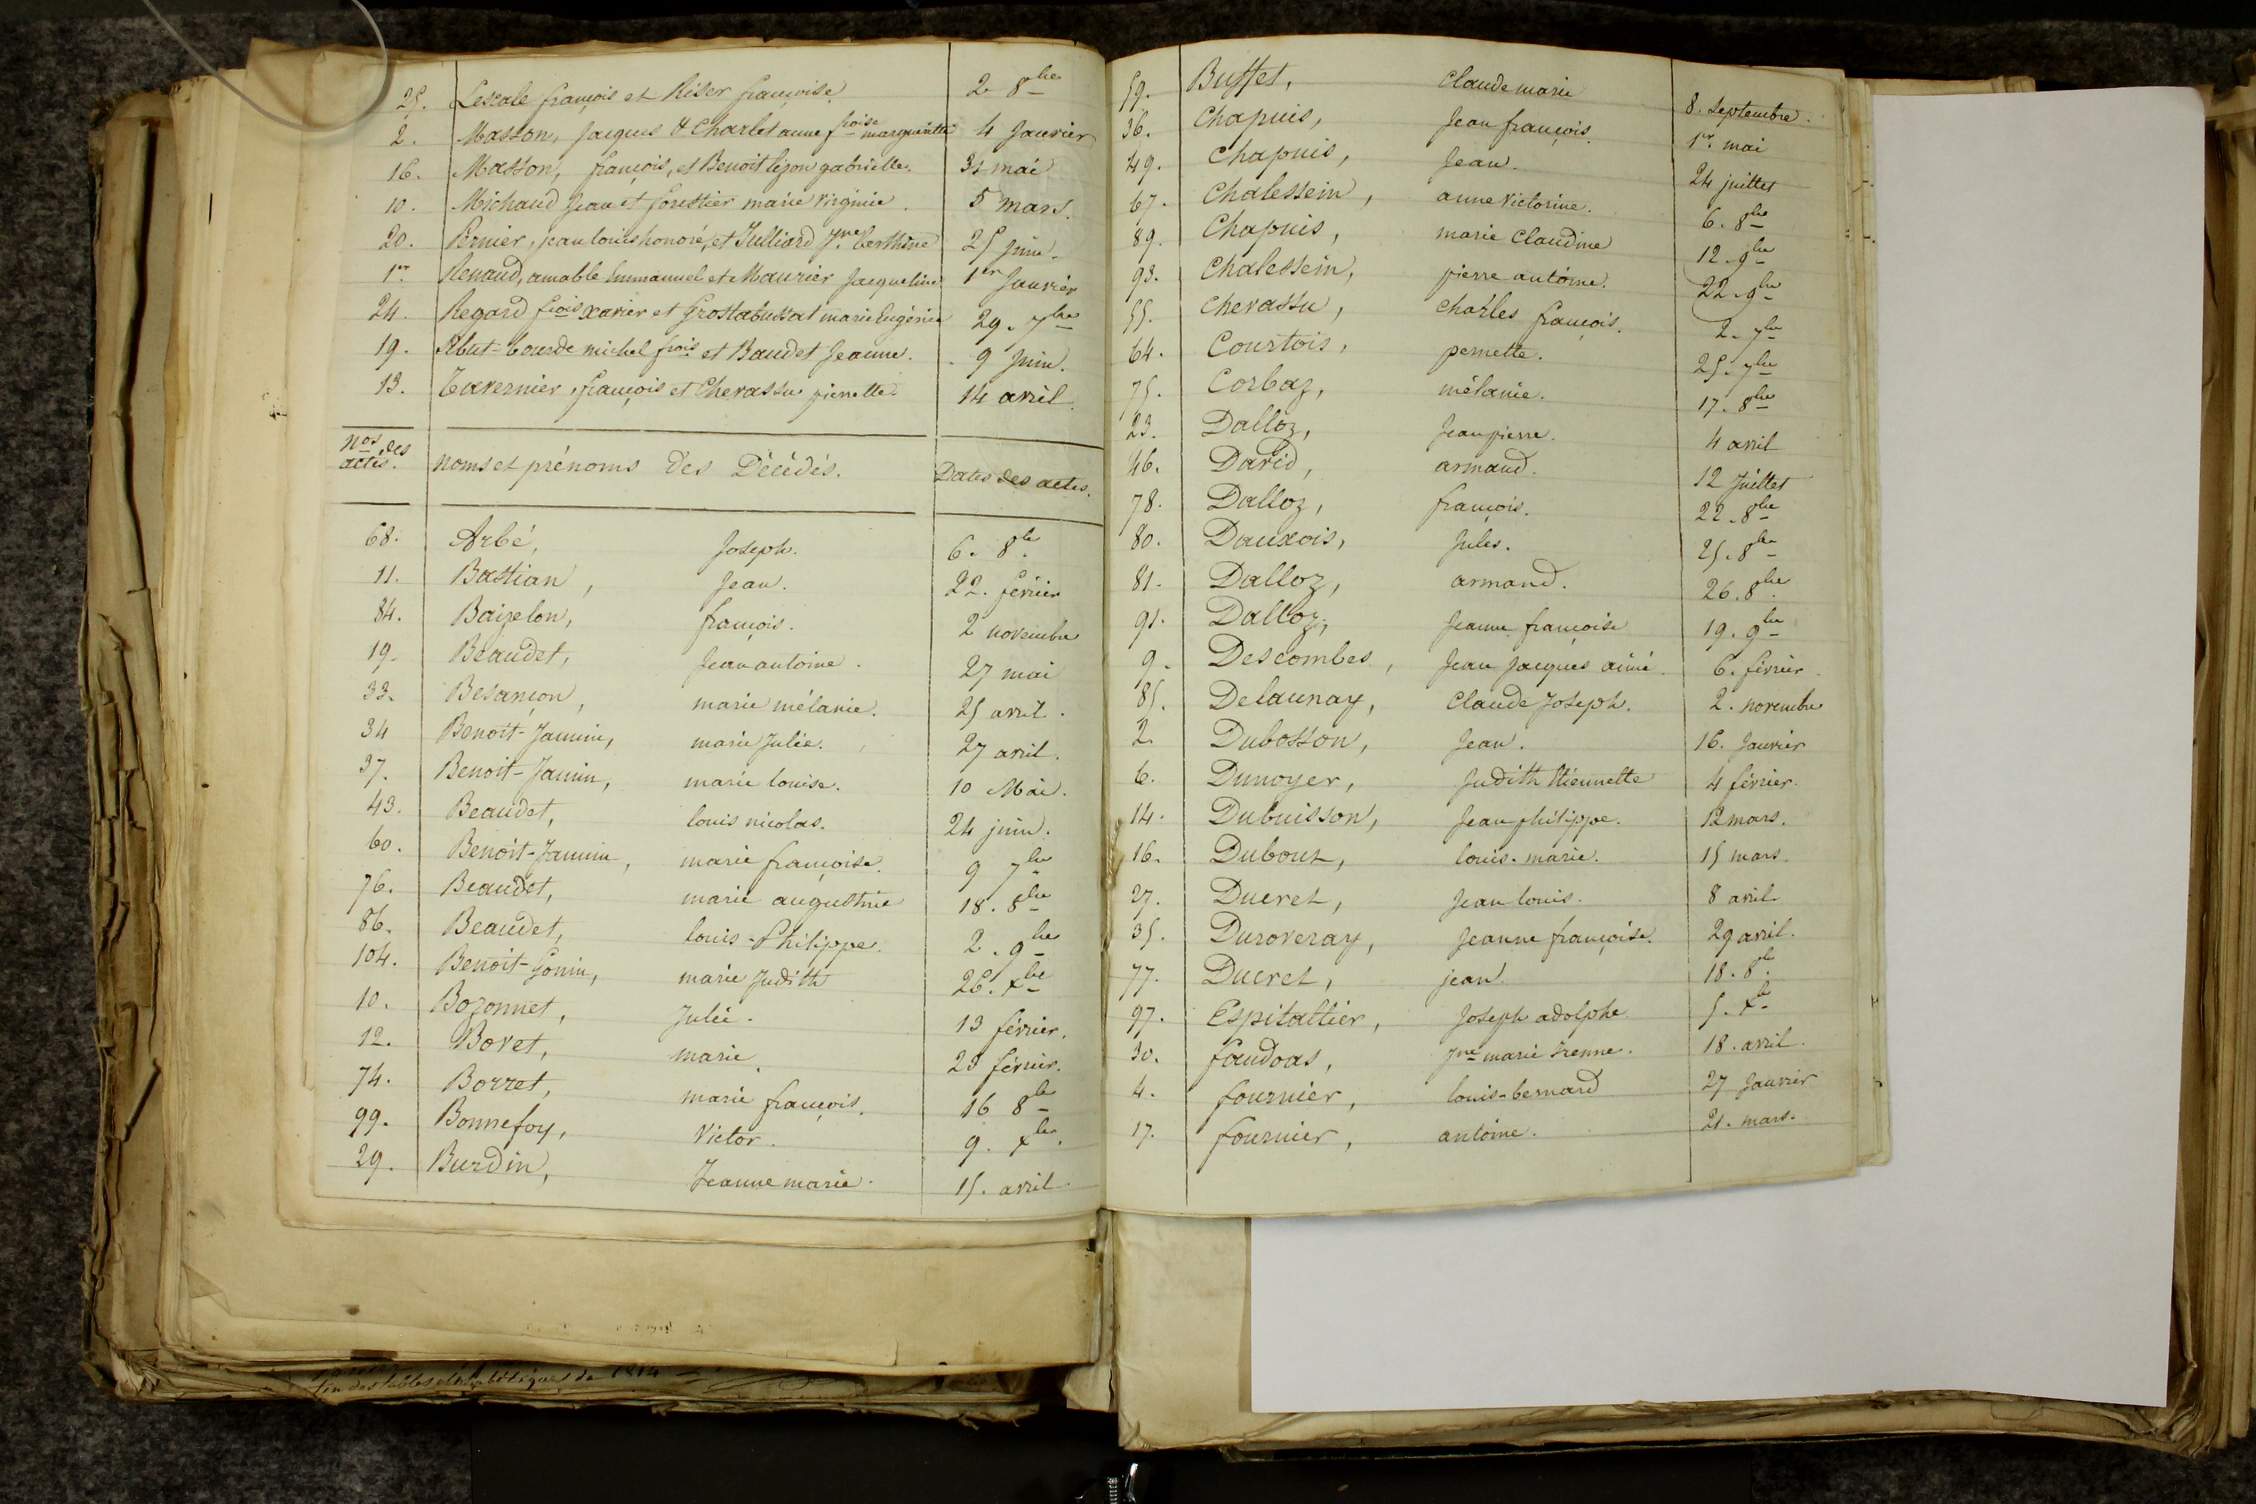 25. Lescale françois et Riser françoise. 2 8bre
2. Masson, Jacques & Charlet anne froise marguerite 4 Janvier
16. Masson, françois, et Benoit lizon gabrielle. 31 mai
10. Michaud Jean et forestier marie virginie. 5 mars.
20. Pernier, jean louis honoré, et Julliard Jne berthine 25 Juin.
1er Renaud, amable Emmanuel et Maurier Jacqueline 1er Janvier
24. Regard fcois xavier et Grostabussat marie Eugénie 29. 7bre
19. michel frois et Baudet Jeanne. 9 Juin.
13. Tavernier, françois et Chevassu pierrette 14 avril.
Nos des actes. Noms et prénoms des Décédés. Dates des actes.
68. Arbé, Joseph. 6. 8bre
11. Bastian, Jean. 22. février
84. Baizelon, françois. 2 novembre
19. Beaudet, Jean antoine. 27 mai
33. Besançon, marie mélanie. 25 avril.
34 Benoit-Jannin, marie Julie. 27 avril.
37. Benoit-Jannin, marie louise. 10 Mai.
43. Beaudet, louis nicolas. 24 juin.
60. Benoit-Jannin, marie françoise. 9 7bre
76. Beaudet, marie augustine 18. 8bre
86. Beaudet, louis-Philippe. 2. 9bre
104. Benoit-Gonin, marie Judith 26. xbre
10. Bozonnet, Julie. 13 février.
12. Bovet, marie. 23 février.
74. Borret, marie françois. 16 8bre
99. Bonnefoy, Victor. 9. xbre.
29. Burdin, Jeanne marie. 15. avril
59. Buffet, Claude marie 8. Septembre.
36. Chapuis, Jean françois. 1er mai
49. Chapuis, Jean. 24 juillet
67. Chalessein, anne victorine. 6. 8bre
89. Chapuis, marie Claudine 12. 9bre
93. Chalessein, pierre antoine. 22. 9bre
55. Chevassu, Charles françois. 2. 7bre
64. Courtois, pernette. 25. 7bre
75. Corbaz, mélanie. 17. 8bre
23. Dalloz, Jean pierre. 4 avril
46. David, armand. 12 Juillet
78. Dalloz, françois. 22. 8bre
80. Dauxois, Jules. 25. 8bre
81. Dalloz, armand. 26. 8bre
91. Dalloz, Jeanne françoise 19. 9bre
9. Descombes, Jean Jacques aimé. 6. février.
85. Delaunay, Claude Joseph. 2. novembre
2 Dubosson, Jean. 16. Janvier
6. Dunoyer, Judith Etiennette 4 février.
14. Dubuisson, Jean philippe. 12 mars.
16. Dubout, louis-marie. 15 mars.
27. Ducret, Jean louis. 8 avril
35. Duroveray, Jeanne françoise. 29 avril.
77. Ducret, jean. 18. 8bre
97. Espitallier, Joseph adolphe. 5. xbre
30. faudoas, Jne marie Irenne. 18. avril.
4. fournier, louis-bernard 27 Janvier
17. fournier, antoine. 21. mars.
fin des tables alphabétiques de 1814